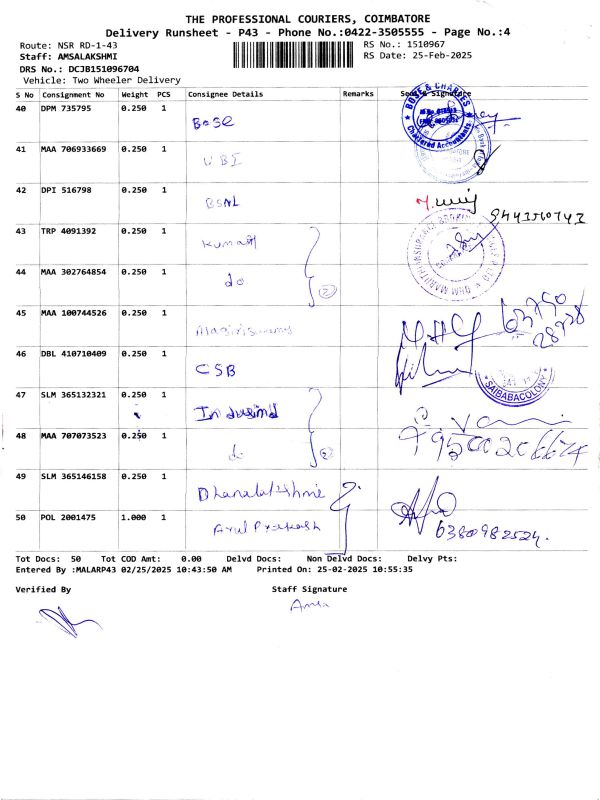 THE PROFESSIONAL COURIERS, COIMBATORE
Delivery Runsheet - P43 - Phone No.:0422-3505555 - Page No.:4
Route: NSR RD-1-43 RS No.: 1510967
Staff: AMSALAKSHMI RS Date: 25-Feb-2025
DRS No.: DCJB151096704
Vehicle: Two Wheeler Delivery
S No Consignment No Weight PCS Consignee Details Remarks Seal & Signature
40 DPM 735795 0.250 1 Bose BOSE & CHARLES Chartered Accountants
41 MAA 706933669 0.250 1 UBI
42 DPI 516798 0.250 1 BSNL
43 TRP 4091392 0.250 1 Kumar
44 MAA 302764854 0.250 1 do 2
45 MAA 100744526 0.250 1
46 DBL 410710409 0.250 1 CSB SAIBABACOLONY
47 SLM 365132321 0.250 1 Indusind
48 MAA 707073523 0.250 1 do 2
49 SLM 365146158 0.250 1
50 POL 2001475 1.000 1 Arul Prakash 6380982524.
Tot Docs: 50 Tot COD Amt: 0.00 Delvd Docs: Non Delvd Docs: Delvy Pts:
Entered By :MALARP43 02/25/2025 10:43:50 AM Printed On: 25-02-2025 10:55:35
Verified By Staff Signature
Amsa